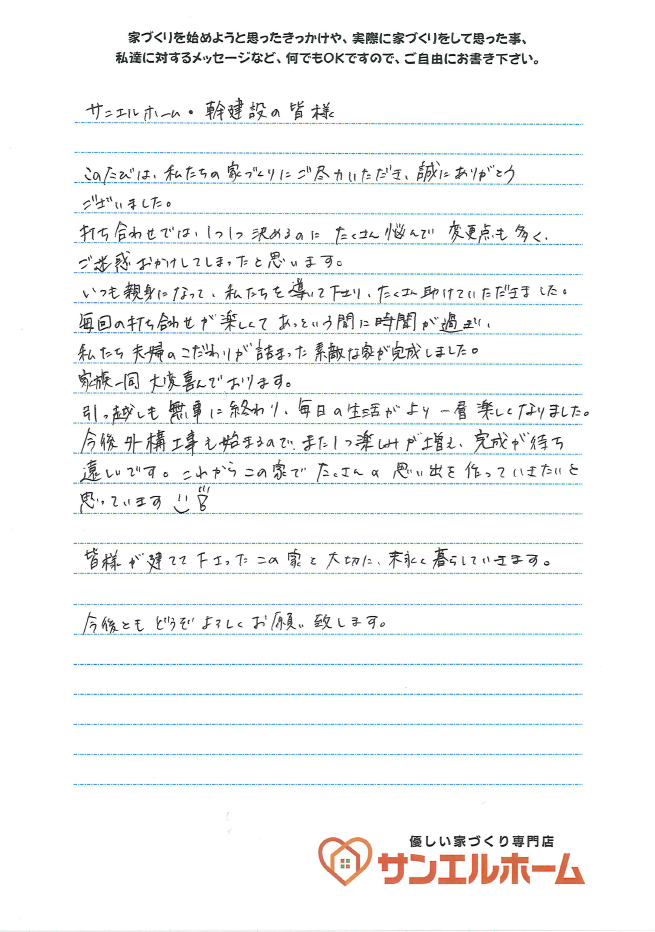 家づくりを始めようと思ったきっかけや、実際に家づくりをして思った事、
私達に対するメッセージなど、何でもOKですので、ご自由にお書き下さい。
サンエルホーム・幹建設の皆様
このたびは、私たちの家づくりにご尽力いただき、誠にありがとう
ございました。
打ち合わせでは、1つ1つ決めるのに たくさん悩んで 変更点も多く、
ご迷惑おかけしてしまったと思います。
いつも親身になって、私たちを導いて下さり、たくさん助けていただきました。
毎回の打ち合わせが楽しくて あっという間に時間が過ぎ、
私たち夫婦のこだわりが詰まった素敵な家が完成しました。
家族一同 大変喜んでおります。
引っ越しも無事に終わり、毎日の生活がより一層楽しくなりました。
今後外構工事も始まるので、また1つ楽しみが増え、完成が待ち
遠しいです。これからこの家でたくさんの思い出を作っていきたいと
思っています
皆様が建てて下さったこの家を大切に、末永く暮らしていきます。
今後ともどうぞよろしくお願い致します。
優しい家づくり専門店
サンエルホーム